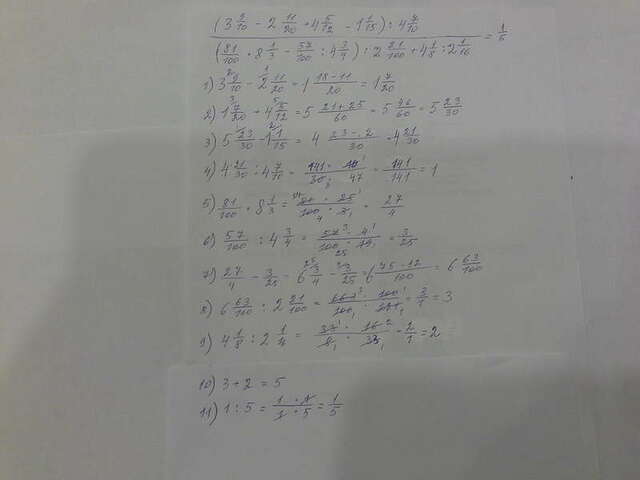 (3 9/10 - 2 11/20 + 4 5/12 - 1 1/15) : 4 7/10
(81/100 · 8 1/3 - 57/100 : 4 3/4) : 2 21/100 + 4 1/8 : 2 1/16 = 1/5
1) 3 9/10 - 2 11/20 = 1 18-11/20 = 1 7/20
2) 1 7/20 + 4 5/12 = 5 21+25/60 = 5 46/60 = 5 23/30
3) 5 23/30 - 1 1/15 = 4 23-2/30 = 4 21/30
4) 4 21/30 : 4 7/10 = 141 · 10/30 · 47 = 141/141 = 1
5) 81/100 · 8 1/3 = 81 · 25/100 · 3 = 27/4
6) 57/100 : 4 3/4 = 57 · 4/100 · 19 = 3/25
7) 27/4 - 3/25 = 6 3/4 - 3/25 = 6 75-12/100 = 6 63/100
8) 6 63/100 : 2 21/100 = 663 · 100/100 · 221 = 3/1 = 3
9) 4 1/8 : 2 1/16 = 33 · 16/8 · 33 = 2/1 = 2
10) 3 + 2 = 5
11) 1 : 5 = 1 · 1/1 · 5 = 1/5